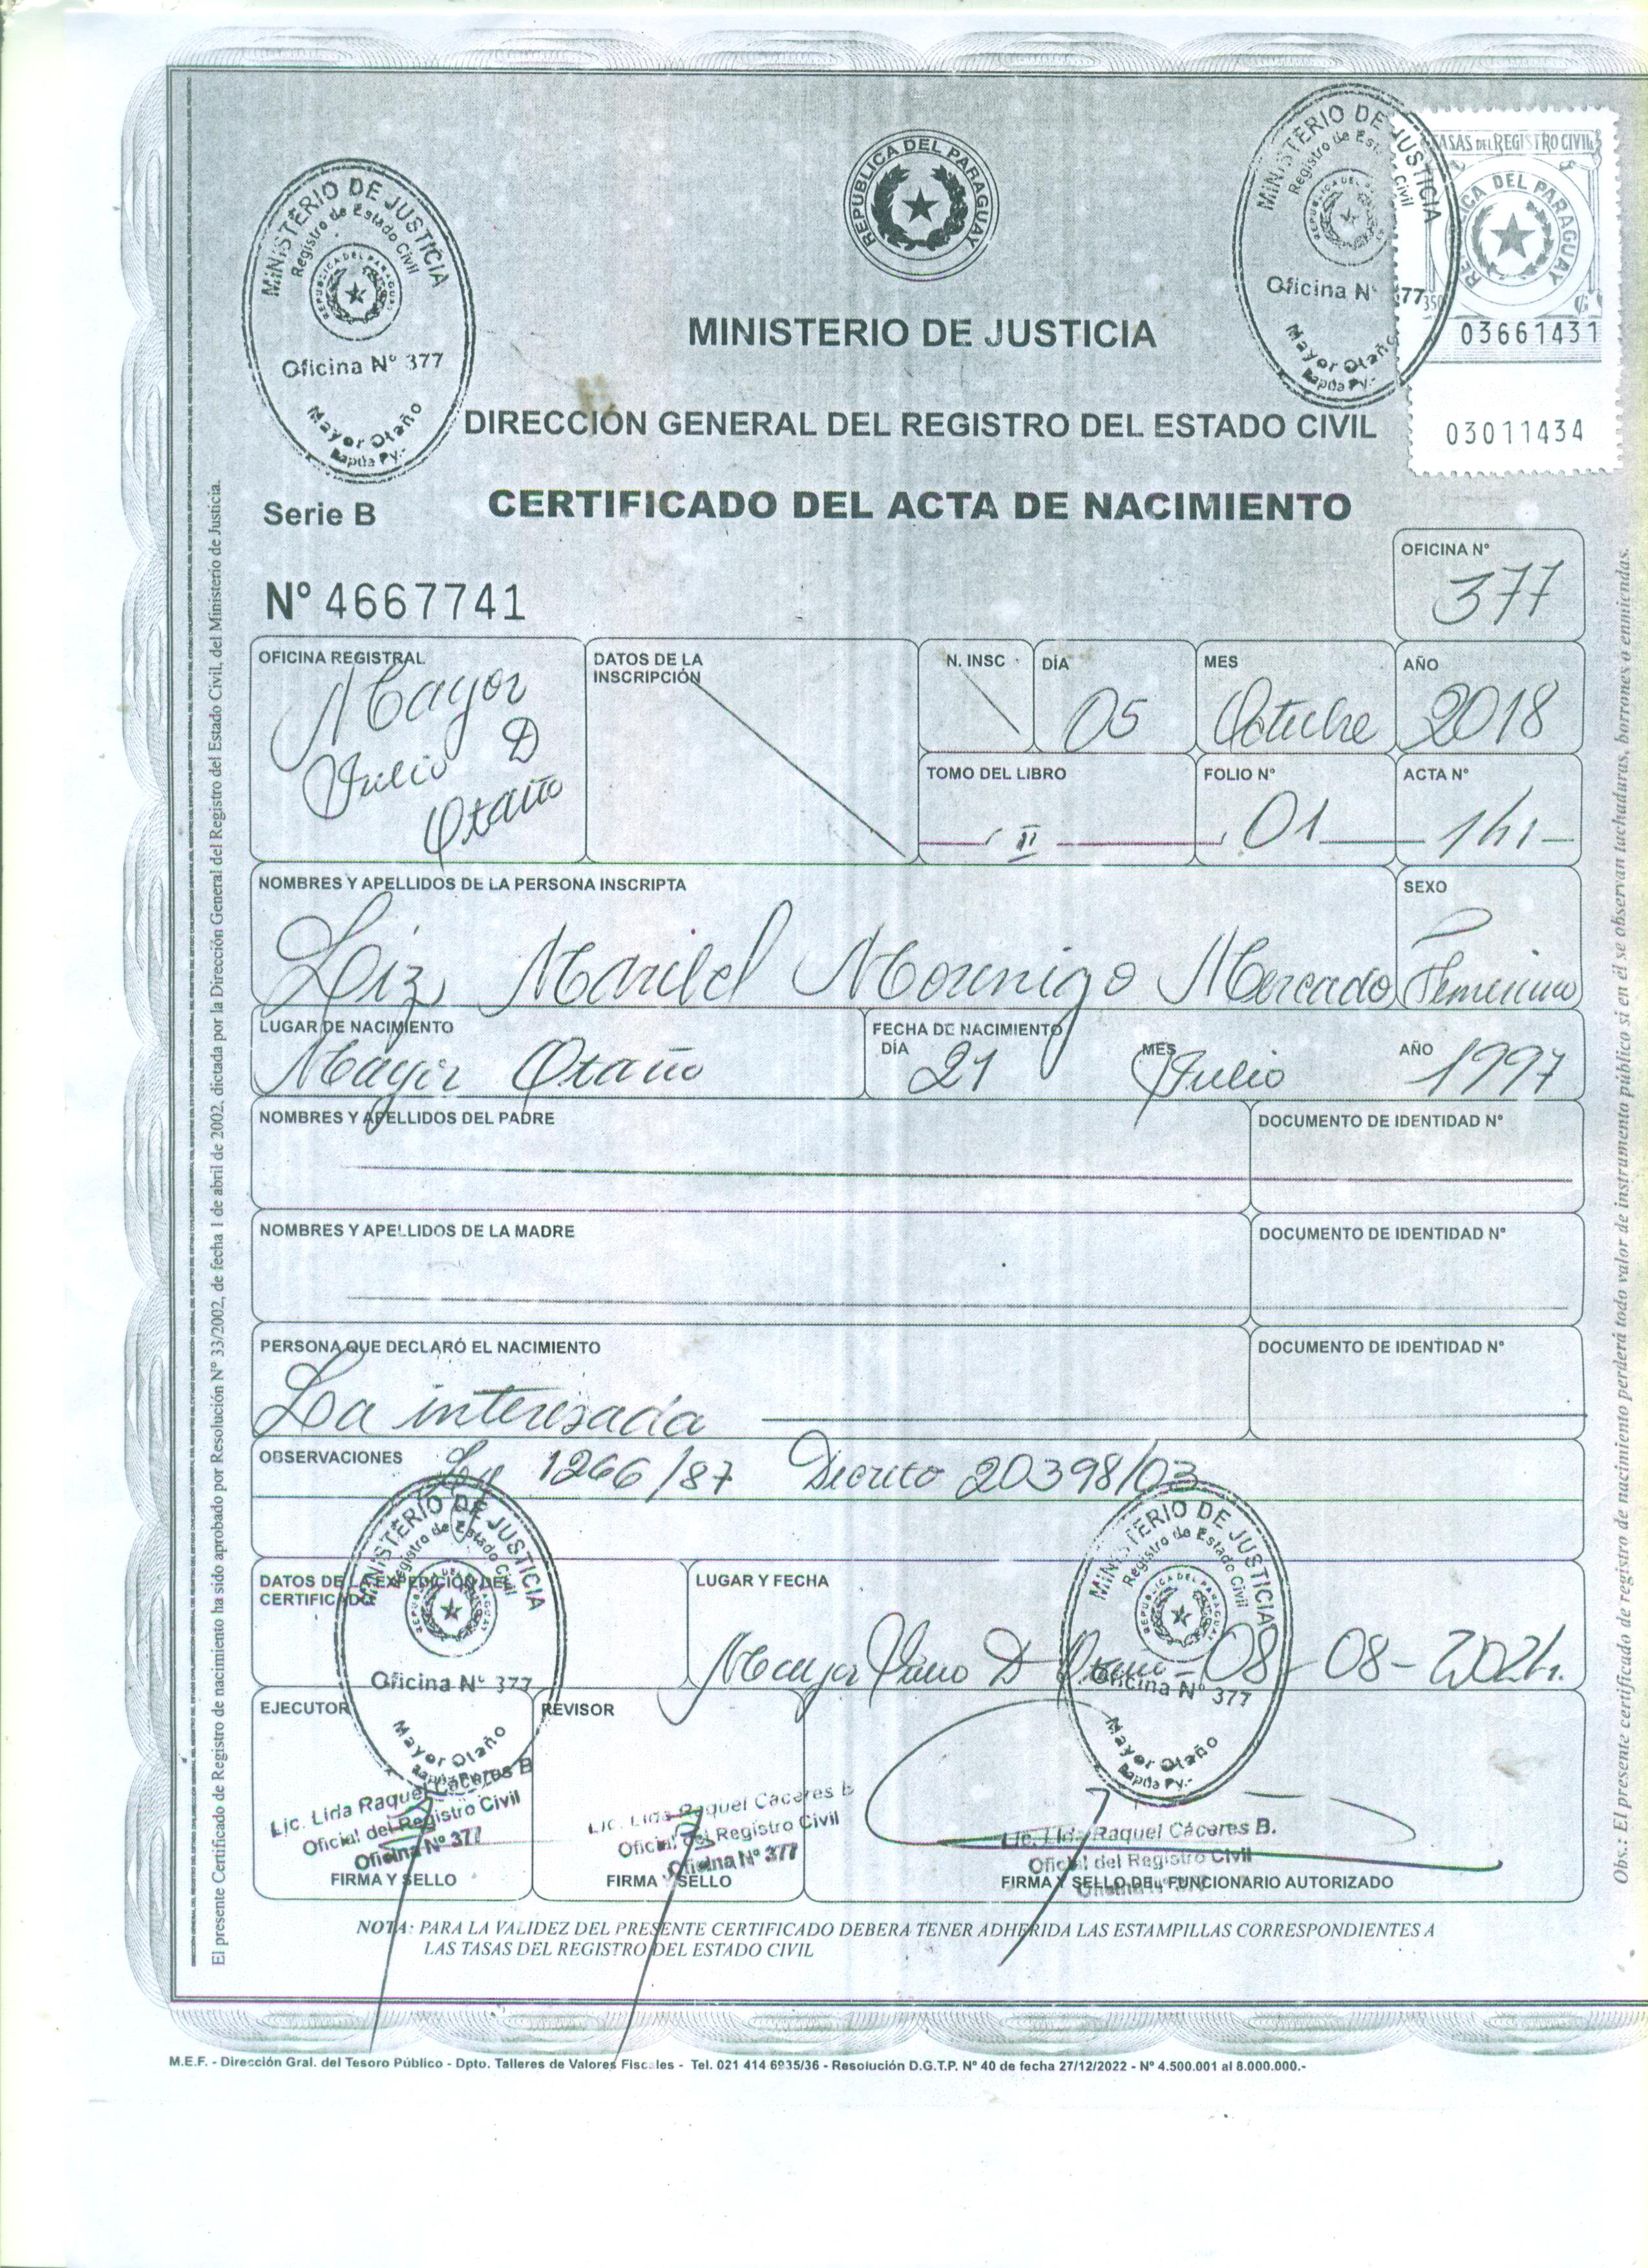 MINISTERIO DE JUSTICIA
Registro de Estado Civil
REPUBLICA DEL PARAGUAY
Oficina Nº 377
Mayor Otaño
Itapúa Py.-
REPUBLICA DEL PARAGUAY
MINISTERIO DE JUSTICIA
Registro de Est. Civil
Oficina Nº 377
Mayor Otaño
Itapúa Py.-
TASAS DEL REGISTRO CIVIL
REPUBLICA DEL PARAGUAY
03661431
03011434
MINISTERIO DE JUSTICIA
DIRECCIÓN GENERAL DEL REGISTRO DEL ESTADO CIVIL
Serie B
CERTIFICADO DEL ACTA DE NACIMIENTO
Nº 4667741
OFICINA Nº
377
OFICINA REGISTRAL
Mayor
Julio D
Otaño
DATOS DE LA
INSCRIPCIÓN
N. INSC
DÍA
05
MES
Octubre
AÑO
2018
TOMO DEL LIBRO
II
FOLIO Nº
01
ACTA Nº
NOMBRES Y APELLIDOS DE LA PERSONA INSCRIPTA
Liz Maribel Morinigo Mercado
SEXO
Femenino
LUGAR DE NACIMIENTO
Mayor Otaño
FECHA DE NACIMIENTO
DÍA 21 MES Julio AÑO 1997
NOMBRES Y APELLIDOS DEL PADRE
DOCUMENTO DE IDENTIDAD Nº
NOMBRES Y APELLIDOS DE LA MADRE
DOCUMENTO DE IDENTIDAD Nº
PERSONA QUE DECLARÓ EL NACIMIENTO
La interesada
DOCUMENTO DE IDENTIDAD Nº
OBSERVACIONES Ley 1266/87 Decreto 20398/03
MINISTERIO DE JUSTICIA
Registro de Estado Civil
Oficina Nº 377
Mayor Otaño
Itapúa Py.-
MINISTERIO DE JUSTICIA
Registro de Estado Civil
REPUBLICA DEL PARAGUAY
Oficina Nº 377
Mayor Otaño
Itapúa Py.-
DATOS DE LA EXPEDICIÓN DEL
CERTIFICADO
LUGAR Y FECHA
Mayor Julio D Otaño - 08 - 08 - 2024.
EJECUTOR
Lic. Lida Raquel Cáceres B
Oficial del Registro Civil
Oficina Nº 377
FIRMA Y SELLO
REVISOR
Lic. Lida Raquel Cáceres B
Oficial del Registro Civil
Oficina Nº 377
FIRMA Y SELLO
Lic. Lida Raquel Cáceres B.
Oficial del Registro Civil
FIRMA Y SELLO DEL FUNCIONARIO AUTORIZADO
NOTA: PARA LA VALIDEZ DEL PRESENTE CERTIFICADO DEBERA TENER ADHERIDA LAS ESTAMPILLAS CORRESPONDIENTES A
LAS TASAS DEL REGISTRO DEL ESTADO CIVIL
M.E.F. - Dirección Gral. del Tesoro Público - Dpto. Talleres de Valores Fiscales - Tel. 021 414 6935/36 - Resolución D.G.T.P. Nº 40 de fecha 27/12/2022 - Nº 4.500.001 al 8.000.000.-
El presente Certificado de Registro de nacimiento ha sido aprobado por Resolución Nº 33/2002, de fecha 1 de abril de 2002, dictada por la Dirección General del Registro del Estado Civil, del Ministerio de Justicia.
Obs.: El presente certificado de registro de nacimiento perderá todo valor de instrumento público si en él se observan tachaduras, borrones o enmiendas.